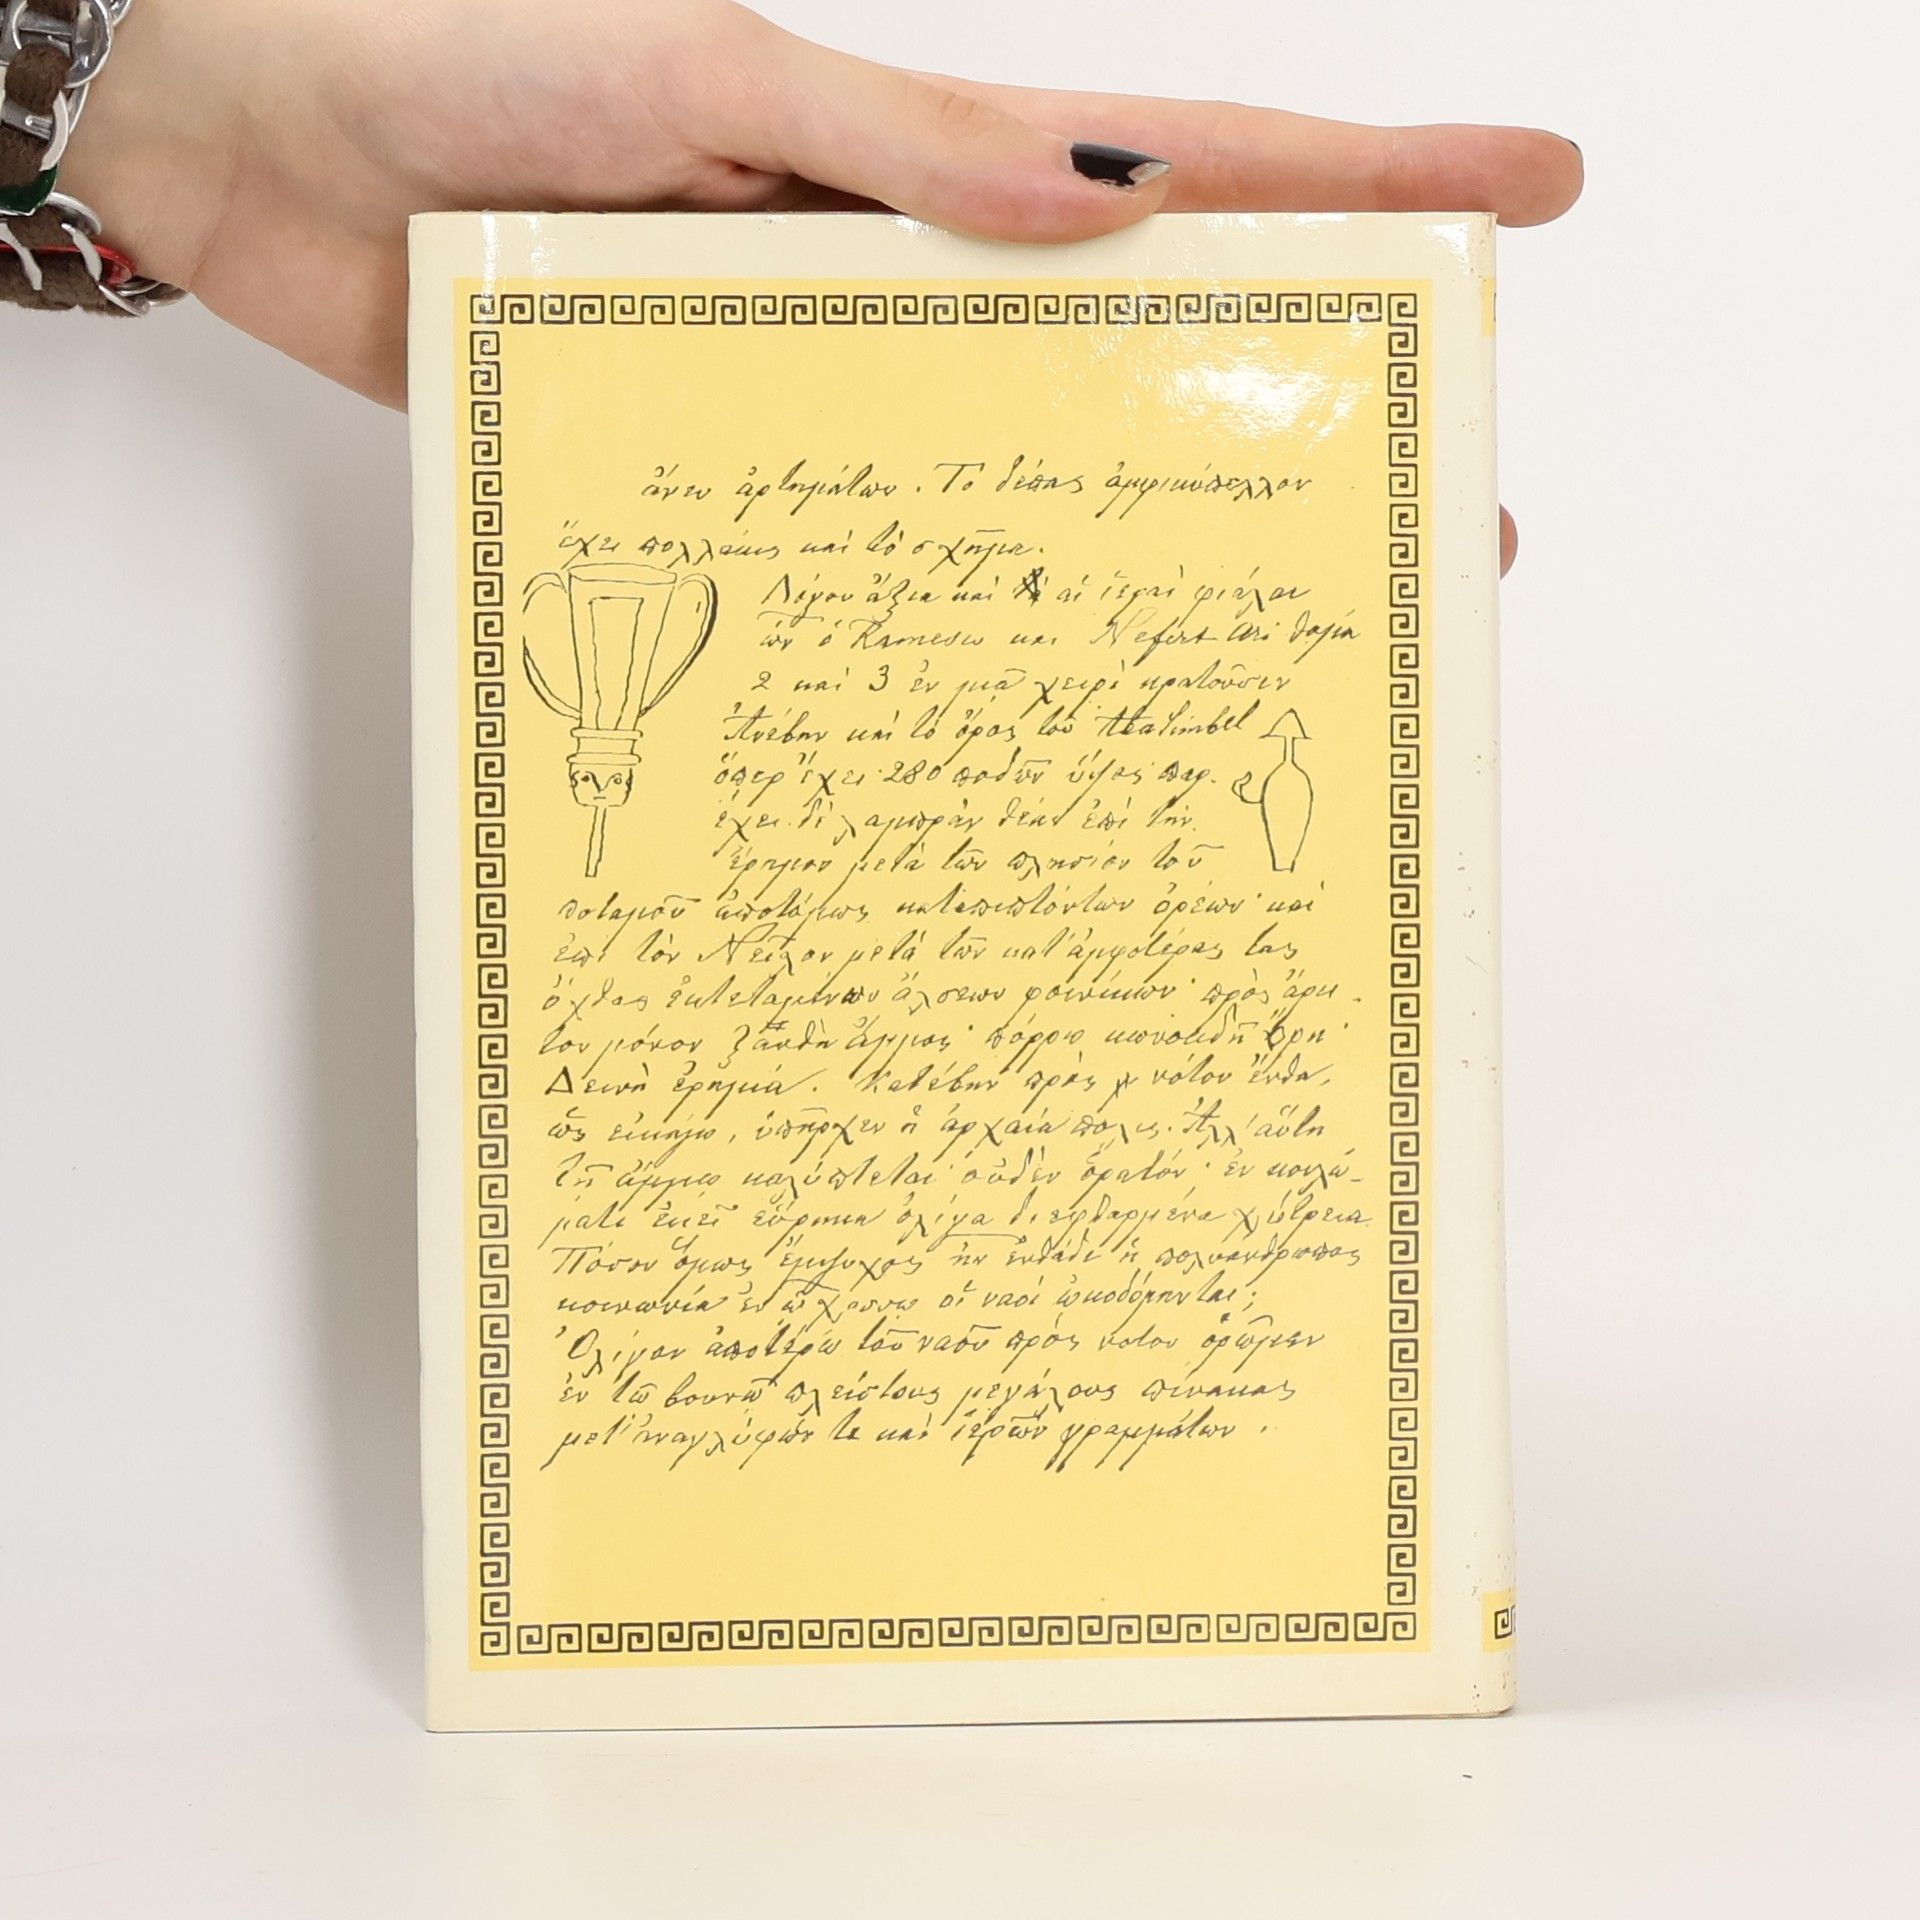 ἄνευ ἀρτημάτων. Τὸ δέπας ἀμφικύπελλον
ἔχει πολλάκις καὶ τὸ σχῆμα.
Λόγου ἄξια καὶ αἱ ἱεραὶ φιάλαι
ὧν ὁ Ramesu και Nefert Ari θαμὰ
2 καὶ 3 ἐν μιᾷ χειρὶ κρατοῦσιν
Ἀνέβην καὶ τὸ ὄρος τοῦ
ὅπερ ἔχει 280 ποδῶν ὕψος παρ.
ἔχει δὲ λαμπρὰν θέαν ἐπὶ τὴν
ἔρημον μετὰ τῶν πλησίον τοῦ
ποταμοῦ ἀποτόμως καταπιπτόντων ὀρέων· καὶ
ἐπὶ τὸν Νεῖλον μετὰ τῶν κατ' ἀμφοτέρας τας
ὄχθας ἐκτεταμένων ἄλσεων φοινίκων· πρὸς ἄρκ-
τον μόνον ξανθὴ ἄμμος· πόρρω κωνοειδῆ ὄρη·
Δεινὴ ἐρημιά. Κατέβην πρὸς νότον ἔνθα,
ὡς εἰκάζω, ὑπῆρχεν ἡ ἀρχαία πόλις. Ἀλλ' αὕτη
τῇ ἄμμῳ καλύπτεται οὐδὲν ὁρατόν· ἐν κοιλώ-
ματι ἐκεῖ εὕρηκα ὀλίγα διεφθαρμένα χύτρεια
Πόσον ὅμως ἔμψυχος ἦν ἐνθάδε ἡ πολυάνθρωπος
κοινωνία ἐν ᾧ χρόνῳ οἱ ναοὶ ᾠκοδόμηνται;
Ὀλίγον ἀποτέρω τοῦ ναοῦ πρὸς νοτον ὁρῶμεν
ἐν τῶ βουνῶ πλείστους μεγάλους πίνακας
μετ' ἀναγλύφων τε καὶ ἱερῶν γραμμάτων.